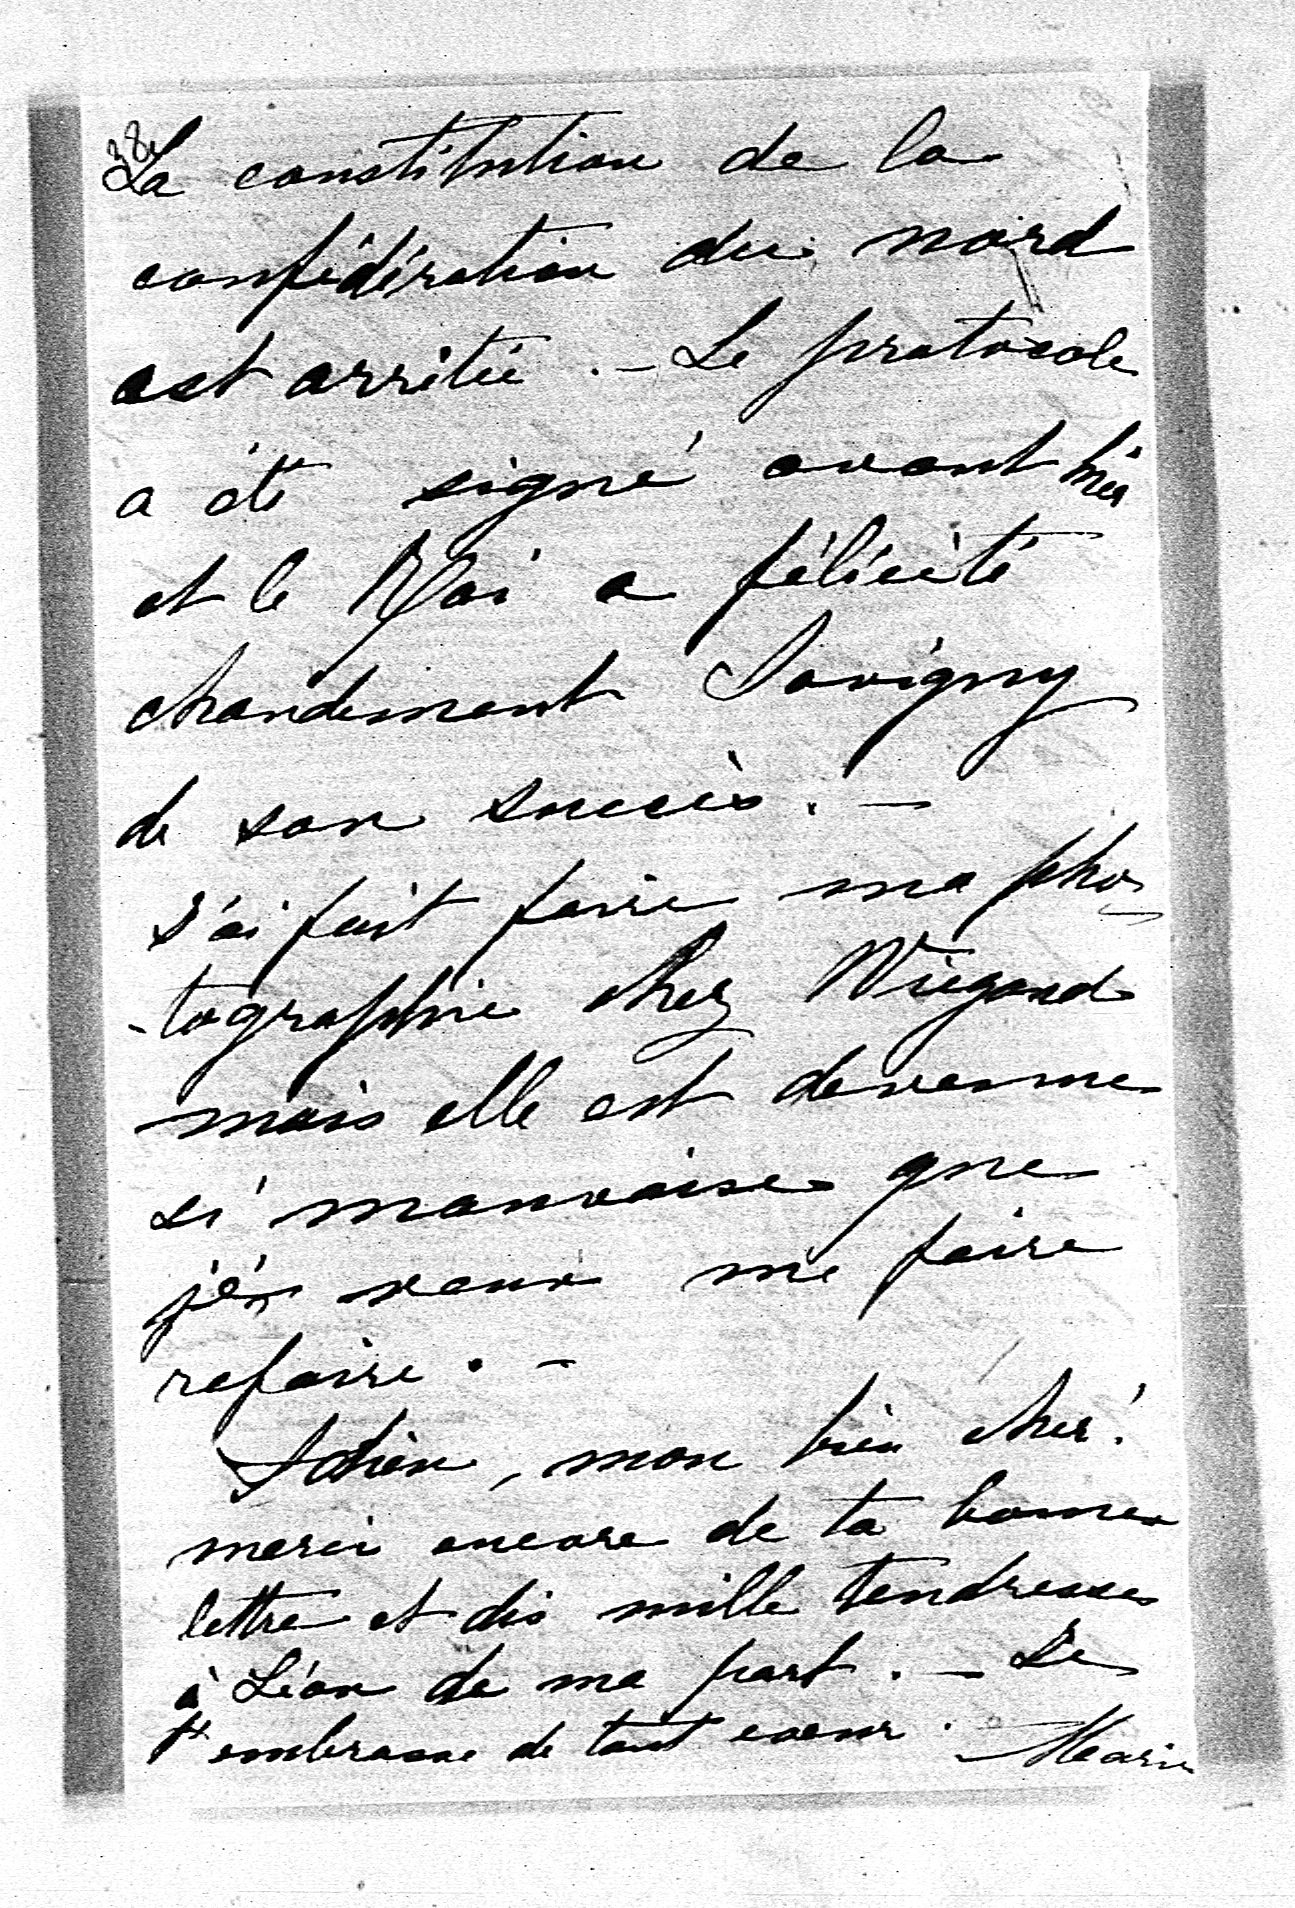 38
La constitution de la
confédération du nord
est arrêtée. – Le protocole
a été signé avant hier
et le Roi a félicité
chaudement Savigny
de son succès. –
J'ai fait faire ma pho-
-tographie chez Wiegand
mais elle est devenue
si mauvaise que
je veux me faire
refaire. –
Adieu, mon bien cher!
merci encore de ta bonne
lettre et dis mille tendresses
à Léon de ma part. – Je
t'embrasse de tout coeur.
Marie